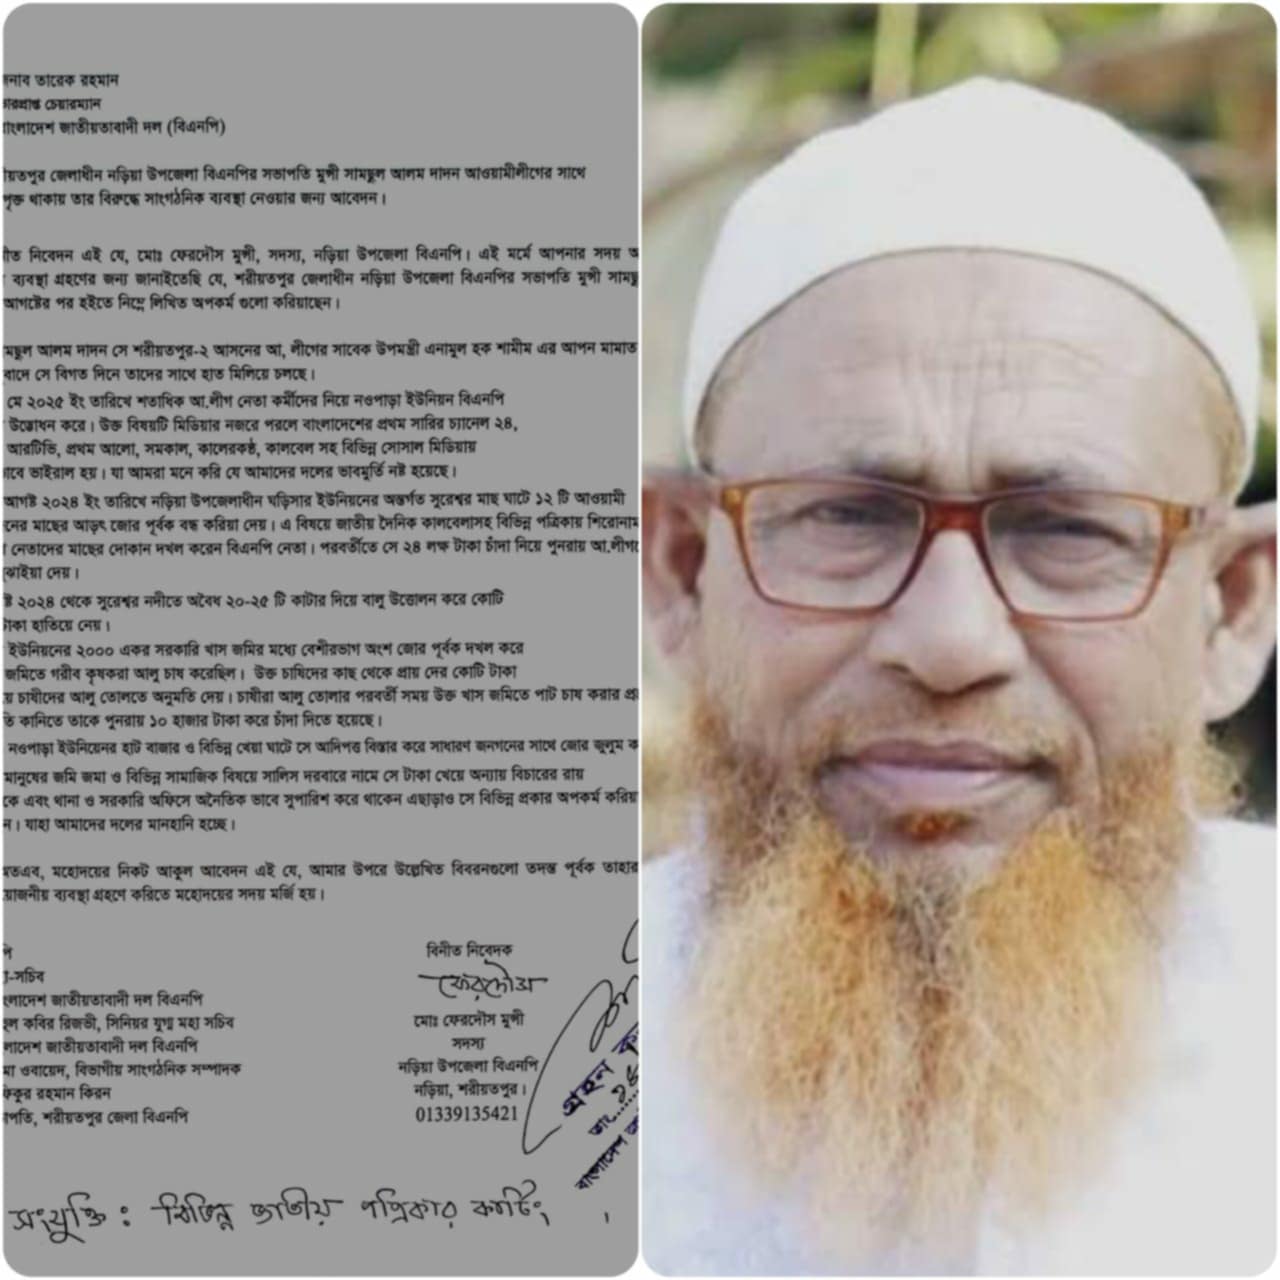 জনাব তারেক রহমান
ভারপ্রাপ্ত চেয়ারম্যান
বাংলাদেশ জাতীয়তাবাদী দল (বিএনপি)
য়তপুর জেলাধীন নড়িয়া উপজেলা বিএনপির সভাপতি মুন্সী সামছুল আলম দাদন আওয়ামীলীগের সাথে
পৃক্ত থাকায় তার বিরুদ্ধে সাংগঠনিক ব্যবস্থা নেওয়ার জন্য আবেদন।
নীত নিবেদন এই যে, মোঃ ফেরদৌস মুন্সী, সদস্য, নড়িয়া উপজেলা বিএনপি। এই মর্মে আপনার সদয় অ
ব্যবস্থা গ্রহণের জন্য জানাইতেছি যে, শরীয়তপুর জেলাধীন নড়িয়া উপজেলা বিএনপির সভাপতি মুন্সী সামছু
আগষ্টের পর হইতে নিম্নে লিখিত অপকর্ম গুলো করিয়াছেন।
মছুল আলম দাদন সে শরীয়তপুর-২ আসনের আ, লীগের সাবেক উপমন্ত্রী এনামুল হক শামীম এর আপন মামাত
বাদে সে বিগত দিনে তাদের সাথে হাত মিলিয়ে চলছে।
মে ২০২৫ ইং তারিখে শতাধিক আ.লীগ নেতা কর্মীদের নিয়ে নওপাড়া ইউনিয়ন বিএনপি
উদ্ভোধন করে। উক্ত বিষয়টি মিডিয়ার নজরে পরলে বাংলাদেশের প্রথম সারির চ্যানেল ২৪,
আরটিভি, প্রথম আলো, সমকাল, কালেরকণ্ঠ, কালবেল সহ বিভিন্ন সোসাল মিডিয়ায়
াবে ভাইরাল হয়। যা আমরা মনে করি যে আমাদের দলের ভাবমুর্তি নষ্ট হয়েছে।
আগষ্ট ২০২৪ ইং তারিখে নড়িয়া উপজেলাধীন ঘড়িসার ইউনিয়নের অন্তর্গত সুরেশ্বর মাছ ঘাটে ১২ টি আওয়ামী
নের মাছের আড়ৎ জোর পূর্বক বন্ধ করিয়া দেয়। এ বিষয়ে জাতীয় দৈনিক কালবেলাসহ বিভিন্ন পত্রিকায় শিরোনাম
নেতাদের মাছের দোকান দখল করেন বিএনপি নেতা। পরবর্তীতে সে ২৪ লক্ষ টাকা চাঁদা নিয়ে পুনরায় আ.লীগ
ঝাইয়া দেয়।
ষ্ট ২০২৪ থেকে সুরেশ্বর নদীতে অবৈধ ২০-২৫ টি কাটার দিয়ে বালু উত্তোলন করে কোটি
টাকা হাতিয়ে নেয়।
ইউনিয়নের ২০০০ একর সরকারি খাস জমির মধ্যে বেশীরভাগ অংশ জোর পূর্বক দখল করে
জমিতে গরীব কৃষকরা আলু চাষ করেছিল। উক্ত চাষিদের কাছ থেকে প্রায় দের কোটি টাকা
য়ে চাষীদের আলু তোলতে অনুমতি দেয়। চাষীরা আলু তোলার পরবর্তী সময় উক্ত খাস জমিতে পাট চাষ করার প্র
তি কানিতে তাকে পুনরায় ১০ হাজার টাকা করে চাঁদা দিতে হয়েছে।
নওপাড়া ইউনিয়েনর হাট বাজার ও বিভিন্ন খেয়া ঘাটে সে আদিপত্ত বিস্তার করে সাধারণ জনগনের সাথে জোর জুলুম ক
মানুষের জমি জমা ও বিভিন্ন সামাজিক বিষয়ে সালিস দরবারে নামে সে টাকা খেয়ে অন্যায় বিচারের রায়
কে এবং থানা ও সরকারি অফিসে অনৈতিক ভাবে সুপারিশ করে থাকেন এছাড়াও সে বিভিন্ন প্রকার অপকর্ম করিয়
ন। যাহা আমাদের দলের মানহানি হচ্ছে।
মতএব, মহোদয়ের নিকট আকুল আবেদন এই যে, আমার উপরে উল্লেখিত বিবরনগুলো তদন্ত পূর্বক তাহার
য়োজনীয় ব্যবস্থা গ্রহণে করিতে মহোদয়ের সদয় মর্জি হয়।
পি
হা-সচিব
ংলাদেশ জাতীয়তাবাদী দল বিএনপি
হুল কবির রিজভী, সিনিয়র যুগ্ম মহা সচিব
লাদেশ জাতীয়তাবাদী দল বিএনপি
মা ওবায়েদ, বিভাগীয় সাংগঠনিক সম্পাদক
ফিকুর রহমান কিরন
াপতি, শরীয়তপুর জেলা বিএনপি
বিনীত নিবেদক
ফেরদৌস
মোঃ ফেরদৌস মুন্সী
সদস্য
নড়িয়া উপজেলা বিএনপি
নড়িয়া, শরীয়তপুর।
01339135421
গ্রহন
তাং
বাংলাদেশ
সংযুক্তি : বিভিন্ন জাতীয় পত্রিকার কাটিং